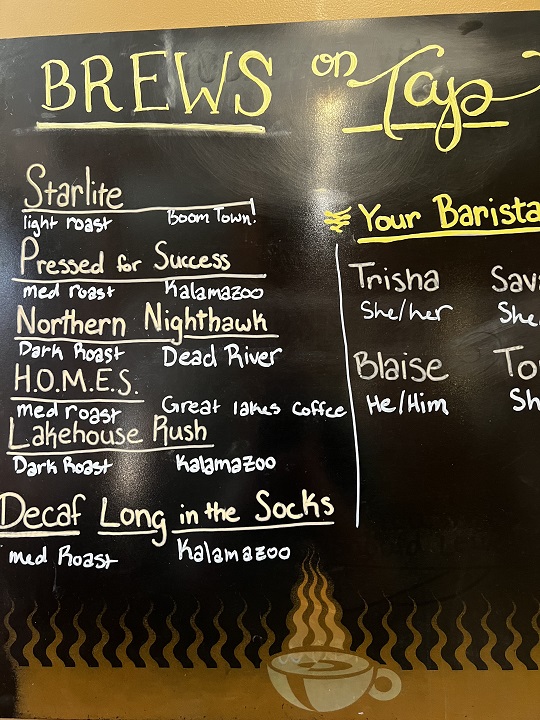 BREWS on Taps
Starlite
light roast Boom Town!
Pressed for Success
med roast Kalamazoo
Northern Nighthawk
Dark Roast Dead River
H.O.M.E.S.
med roast Great lakes coffee
Lakehouse Rush
Dark Roast Kalamazoo
Decaf Long in the Socks
med Roast Kalamazoo
Your Barista
Trisha Sav
She/her She
Blaise To
He/Him Sh